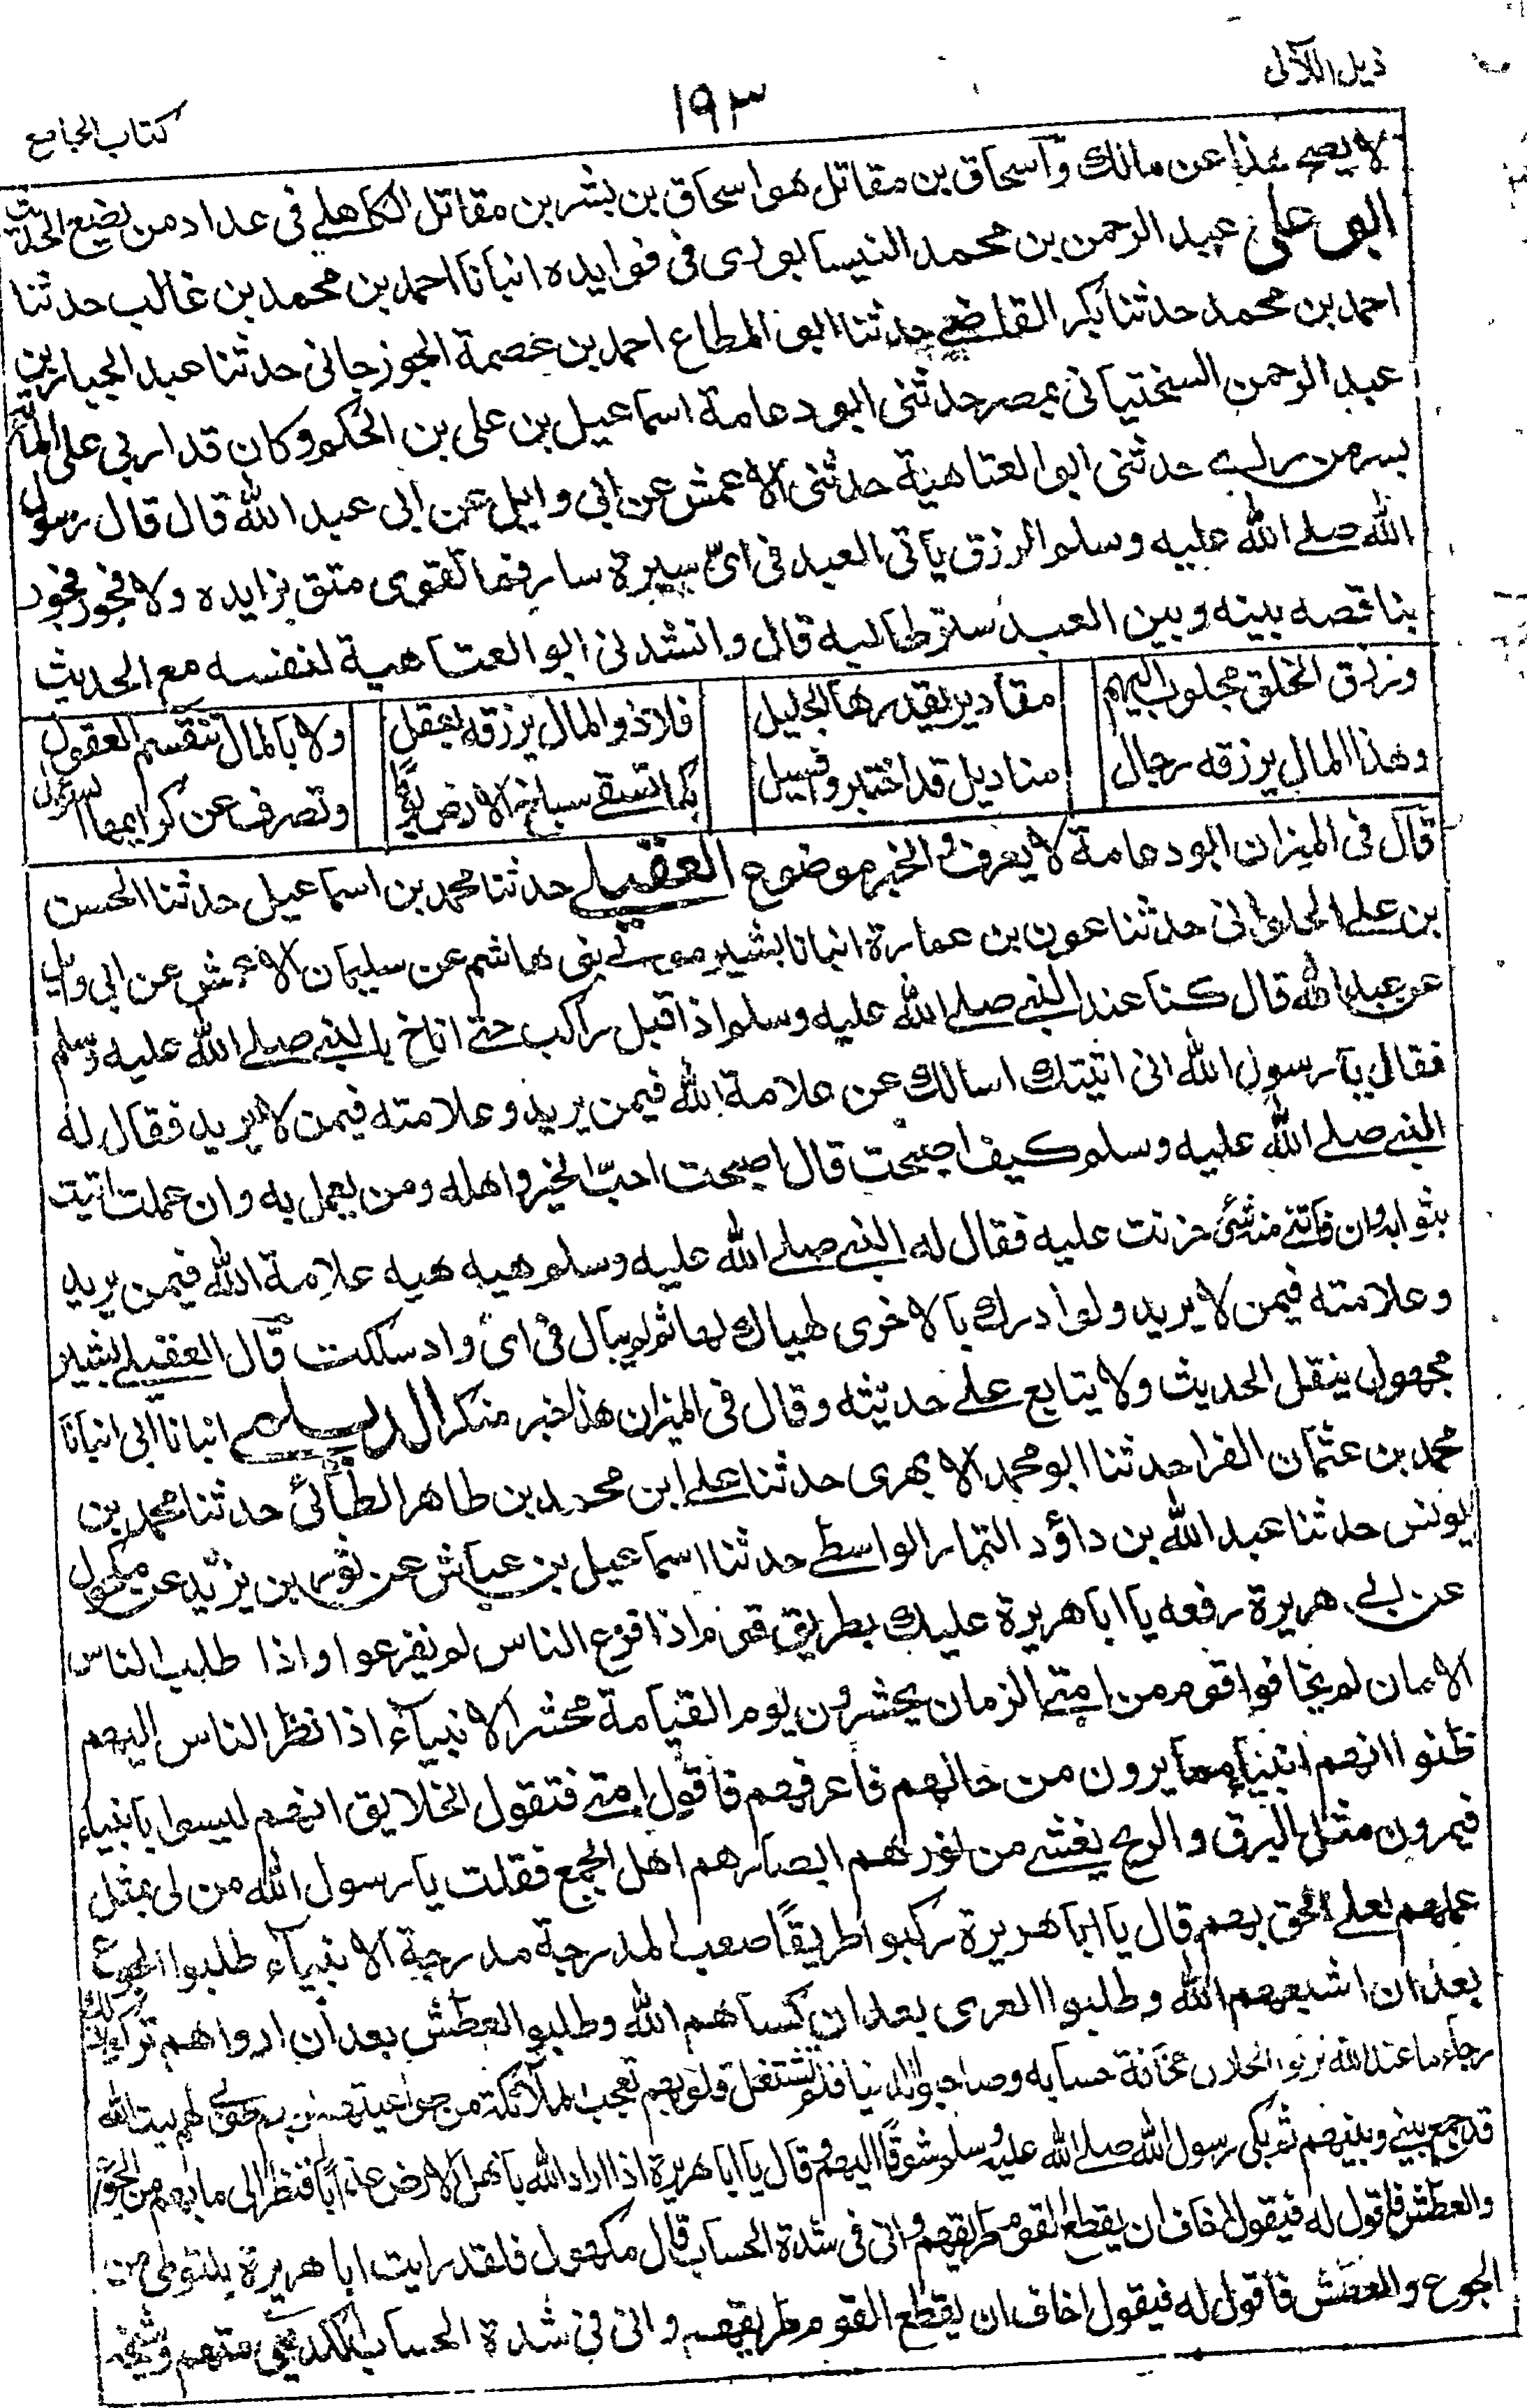 ذيل اللآلى
١٩٣
كتاب الجامع
لا يصح هذا عن مالك وآسحاق بن مقاتل هو اسحاق بن بشر بن مقاتل الكاهلے فى عداد من يضع الحديث
ابو على عبد الرحمن بن محمد النيسابورى فى فوايده انبانا احمد بن محمد بن غالب حدثنا
احمد بن محمد حدثنا بكر القاضے حدثنا ابو المطاع احمد بن عصمة الجوزجانى حدثنا عبد الجبار بن
عبد الرحمن السختيانى بمصر حدثنى ابو دعامة اسماعيل بن على بن الحكم وكان قد اربى على المائة
بسر من راے حدثنى ابو العتاهية حدثنى الاعمش عن ابى وايل عن ابى عبد الله قال قال رسول
الله صلے الله عليه وسلم الرزق ياتى العبد فى اىّ سيرة سار فما تقوى متق بزايده ولا فجور فجور
بناقصه بينه وبين العبد ستر طالبه قال وانشدنى ابو العتاهية لنفسه مع الحديث
ورزق الخلق مجلوب اليهم مقادير يقدرها الجليل فلا ذو المال يرزقه بعقل ولا بالمال تنقسم العقول
وهذا المال يرزقه رجال مناديل قد اختبر وفسيل كما تسقے سباخ الارض وتصرف عن كرايمها
قال فى الميزان ابو دعامة لا يعرف والخبر موضوع العقيلے حدثنا محمد بن اسماعيل حدثنا الحسن
بن علے الحلوانى حدثنا عون بن عمارة انبانا بشير مولے بنى هاشم عن سليمان الاعمش عن ابى وايل
عن عبد الله قال كنا عند النبے صلے الله عليه وسلم اذ اقبل راكب حتے اناخ بالنبے صلے الله عليه وسلم
فقال يا رسول الله انى اتيتك اسالك عن علامة الله فيمن يريد وعلامته فيمن لا يريد فقال له
النبے صلے الله عليه وسلم كيف اصبحت قال اصبحت احبّ الخير واهله ومن يعمل به وان عملت اتيت
بثوابه وان فاتنے منه شئ حزنت عليه فقال له النبے صلے الله عليه وسلم هيه هيه علامة الله فيمن يريد
وعلامته فيمن لا يريد ولو ارادك بالاخرى لهياك لها ثم لم يبال فى اى واد سلكت قال العقيلے بشير
مجهول ينقل الحديث ولا يتابع علے حديثه وقال فى الميزان هذا خبر منكر الديلمے انبانا ابى انبانا
محمد بن عثمان الفرا حدثنا ابو محمد الابهرى حدثنا علے ابن محمد بن طاهر الطائى حدثنا محمد بن
يونس حدثنا عبد الله بن داؤد التمار الواسطے حدثنا اسماعيل بن عباش عن ثور بن يزيد عن مكحول
عن ابے هريرة رفعه يا ابا هريرة عليك بطريق قوم اذا فزع الناس لم يفزعوا واذا طلب الناس
الامان لم يخافوا قوم من امتے الزمان يحشرون يوم القيامة محشر الانبياء اذا نظر الناس اليهم
ظنوا انهم انبياء مما يرون من حالهم فاعرفهم فاقول امتے فتقول الخلايق انهم ليسوا بانبياء
فيمرون مثل البرق والريح يغشے من نورهم ابصارهم اهل الجمع فقلت يا رسول الله من لى بمثل
عملهم لعلے الحق بهم قال يا ابا هريرة ركبوا طريقًا صعب المدرجة مدرجة الانبياء طلبوا الجوع
بعد ان اشبعهم الله وطلبوا العرى بعد ان كساهم الله وطلبوا العطش بعد ان ارواهم تركوا ذلك
رجاء ما عند الله تركوا الحلال مخافة حسابه وصاحبوا الدنيا فلم تشتغل قلوبهم تعجب الملائكة من طواعيتهم لربهم طوبے لهم ليت الله
قد جمع بينے وبينهم ثم بكى رسول الله صلے الله عليه وسلم شوقًا اليهم وقال يا ابا هريرة اذا اراد الله باهل الارض عذابًا فنظر الى ما بهم من الجوع
والعطش فاقول له فيقول اخاف ان يقطع القوم طريقهم وانى فى شدة الحساب قال مكحول فلقد رايت ابا هريرة يلتوى من
الجوع والعطش فاقول له فيقول اخاف ان يقطع القوم طريقهم وانى فى شدة الحساب